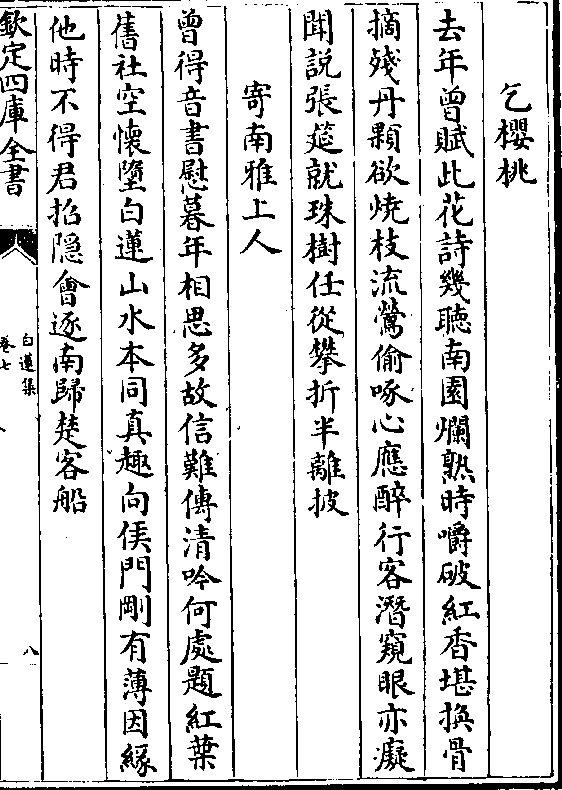 乞櫻桃
去年曾賦此花詩幾聽南園爛熟時嚼破紅香堪換骨
摘殘丹顆欲燒枝流鶯偷啄心應醉行客潛窺眼亦癡
聞説張筵就珠樹任從攀折半離披
寄南雅上人
曾得音書慰暮年相思多故信難傳清吟何處題紅葉
舊社空懷墮白蓮山水本同真趣向侯門剛有薄因緣
他時不得君招隠會逐南歸楚客船
欽定四庫全書
白蓮集
卷七
八